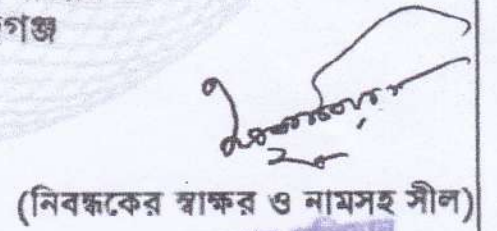 গঞ্জ
(নিবন্ধকের স্বাক্ষর ও নামসহ সীল)